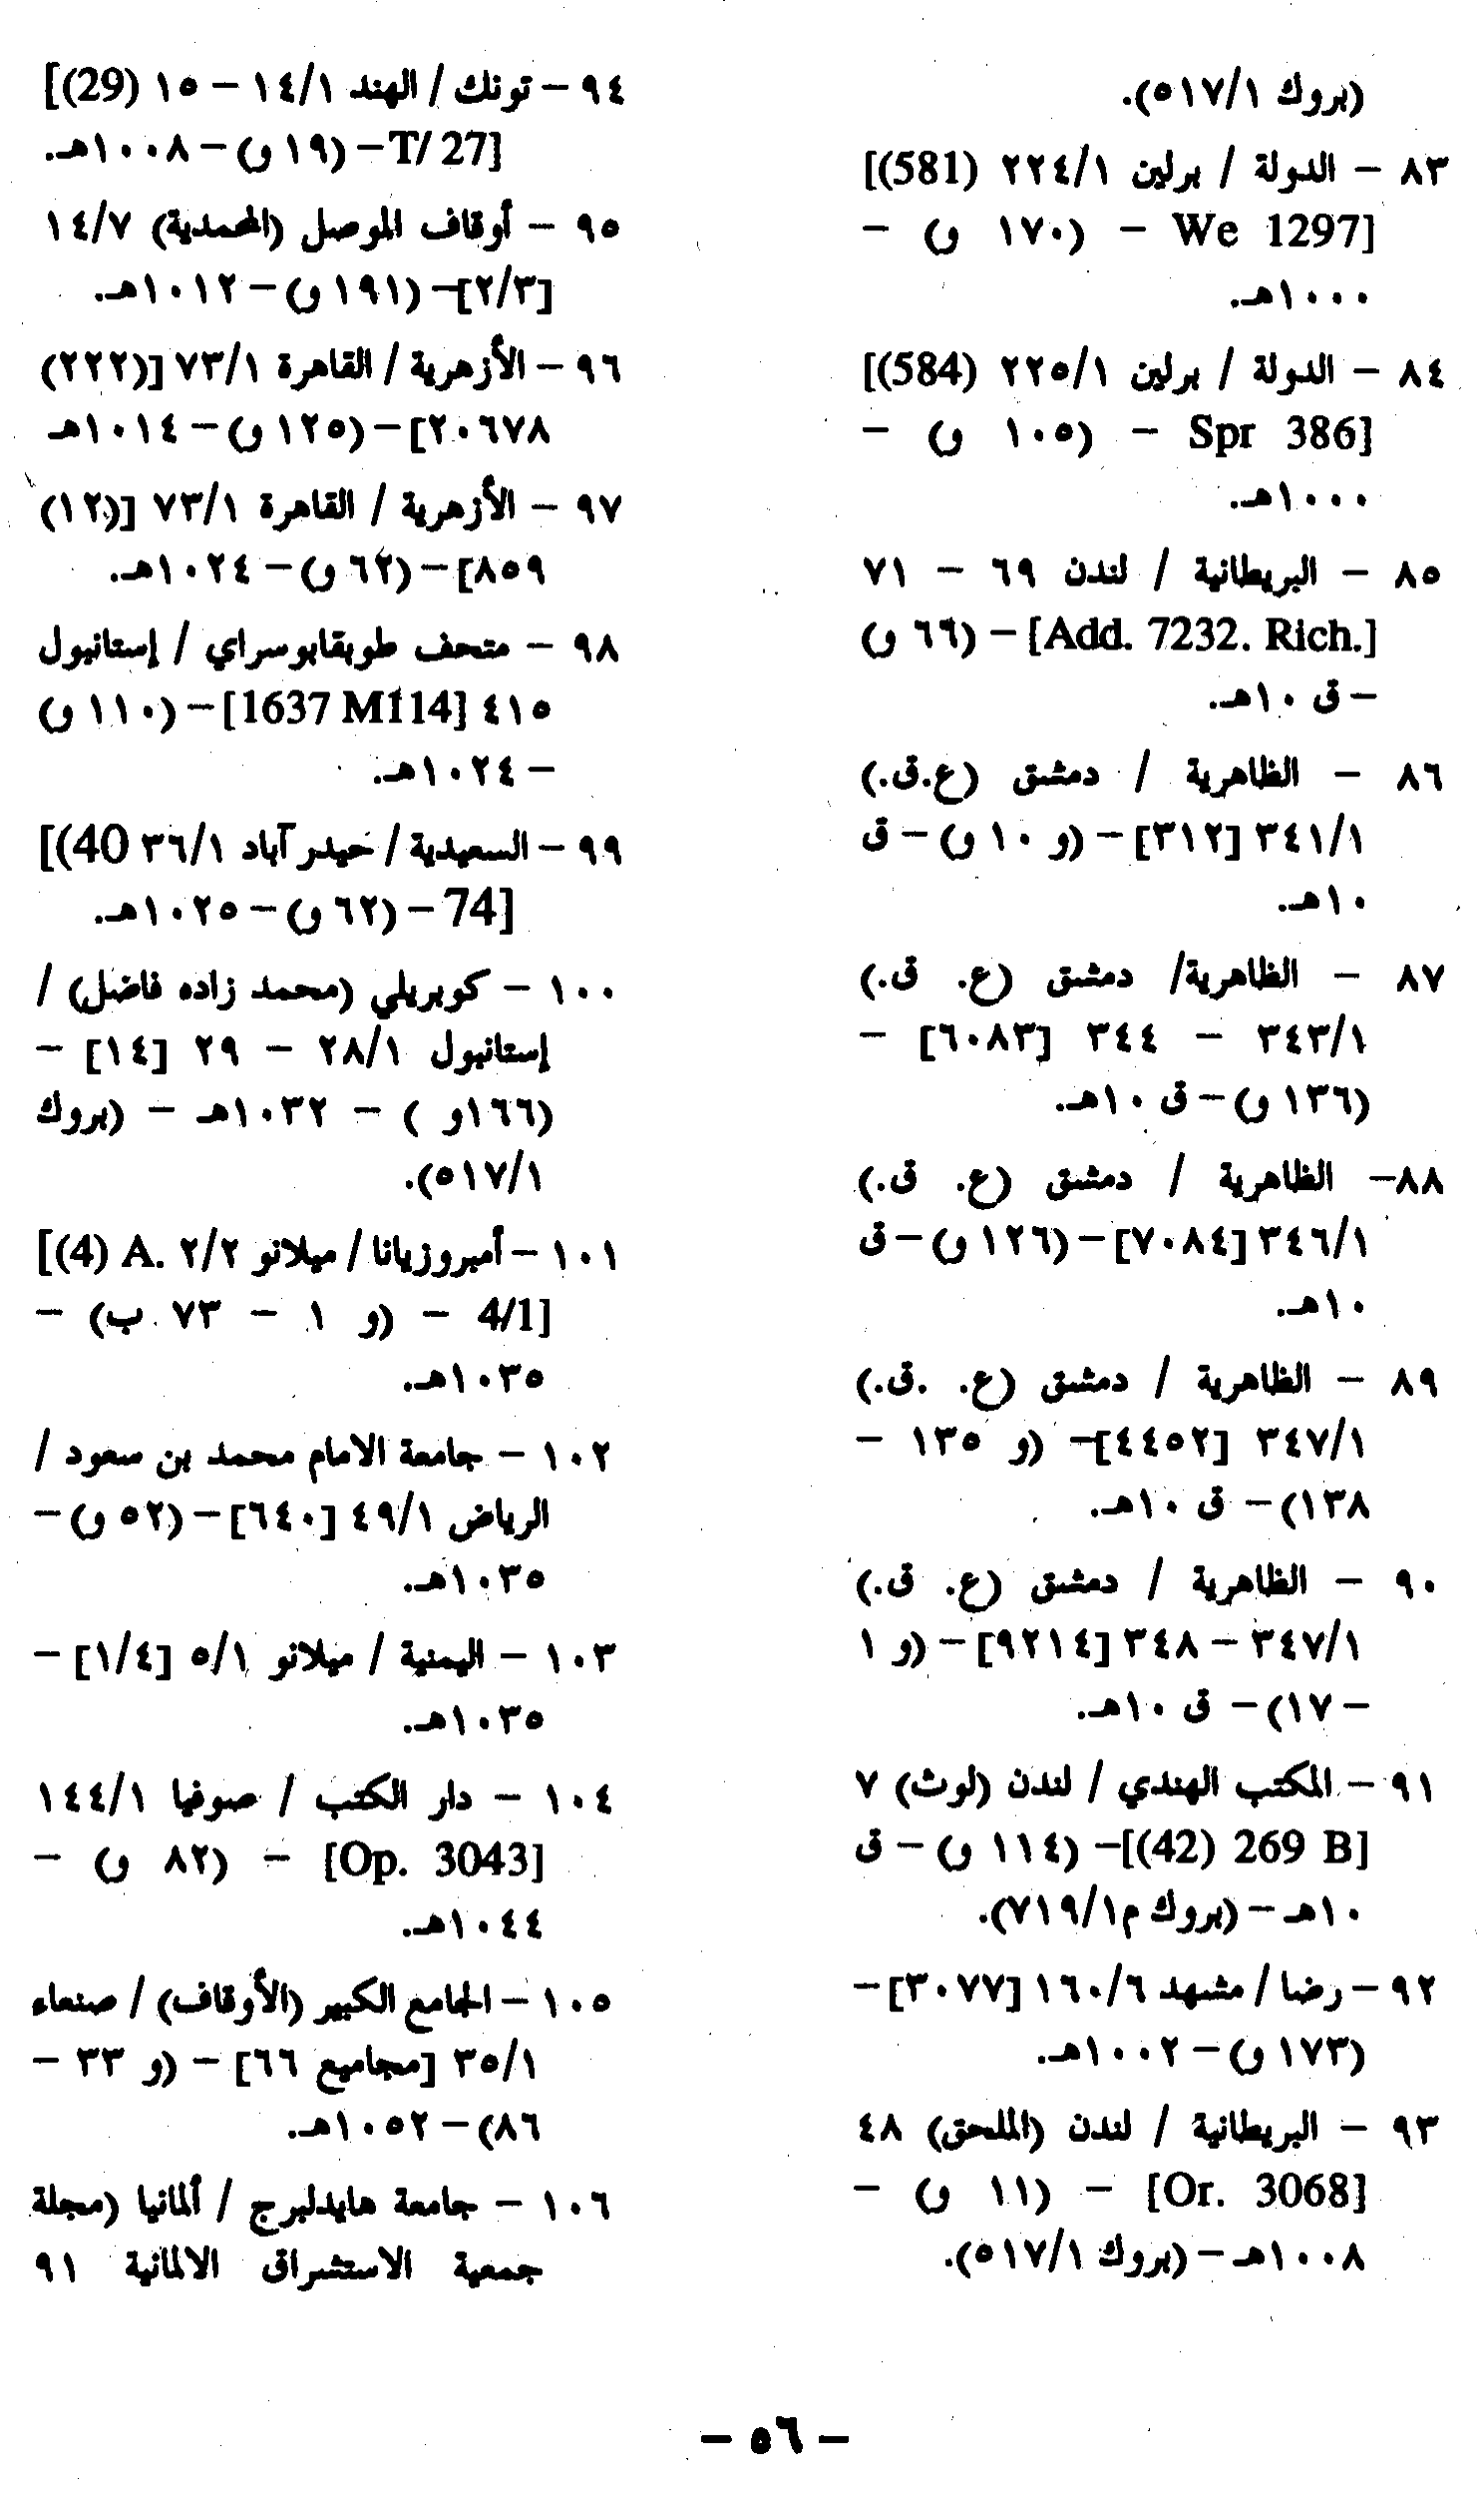 (بروك ٥١٧/١).
٨٣ – الدولة / برلين ٢٢٤/١ (581)]
We 1297] – (١٧٠ و) –
١٠٠٠هـ.
٨٤ – الدولة / برلين ٢٢٥/١ (584)]
Spr 386] – (١٠٥ و) –
١٠٠٠هـ.
٨٥ – البريطانية / لندن ٦٩ – ٧١
[Add. 7232. Rich.] – (٦٦ و)
– ق ١٠هـ.
٨٦ – الظاهرية / دمشق (ع.ق.)
٣٤١/١ [٣١٢] – (و ١٠ و) – ق
١٠هـ.
٨٧ – الظاهرية/ دمشق (ع. ق.)
٣٤٣/١ – ٣٤٤ [٦٠٨٣] –
(١٣٦ و) – ق ١٠هـ.
٨٨– الظاهرية / دمشق (ع. ق.)
٣٤٦/١ [٧٠٨٤] – (١٢٦ و) – ق
١٠هـ.
٨٩ – الظاهرية / دمشق (ع. .ق.)
٣٤٧/١ [٤٤٥٢]– (و ١٣٥ –
١٣٨) – ق ١٠هـ.
٩٠ – الظاهرية / دمشق (ع. ق.)
٣٤٧/١ – ٣٤٨ [٩٢١٤] – (و ١
– ١٧) – ق ١٠هـ.
٩١ – المكتب الهندي / لندن (لوث) ٧
[(42) 269 B]– (١١٤ و) – ق
١٠هـ – (بروك م٧١٩/١).
٩٢ – رضا / مشهد ١٦٠/٦ [٣٠٧٧] –
(١٧٣ و) – ١٠٠٢هـ.
٩٣ – البريطانية / لندن (الملحق) ٤٨
[Or. 3068] – (١١ و) –
١٠٠٨هـ – (بروك ٥١٧/١).
٩٤ – تونك / الهند ١٤/١ – ١٥ (29)]
T/ 27] – (١٩ و) – ١٠٠٨هـ.
٩٥ – أوقاف الموصل (المحمدية) ١٤/٧
[٢/٣]– (١٩١ و) – ١٠١٢هـ.
٩٦ – الأزهرية / القاهرة ٧٣/١ [(٢٢٢)
٢٠٦٧٨] – (١٢٥ و) – ١٠١٤هـ
٩٧ – الأزهرية / القاهرة ٧٣/١ [(١٢)
٨٥٩] – (٦٢ و) – ١٠٢٤هـ.
٩٨ – متحف طوبقابوسراي / إستانبول
٤١٥ [1637 M114] – (١١٠ و)
– ١٠٢٤هـ.
٩٩ – السعيدية / حيدر آباد ٣٦/١ 40)]
74] – (٦٢ و) – ١٠٢٥هـ.
١٠٠ – كوبريلي (محمد زاده فاضل) /
إستانبول ٢٨/١ – ٢٩ [١٤] –
(١٦٦و ) – ١٠٣٢هـ – (بروك
٥١٧/١).
١٠١ – أمبروزيانا / ميلانو ٢/٢ .A (4)]
4/1] – (و ١ – ٧٣ ب) –
١٠٣٥هـ.
١٠٢ – جامعة الامام محمد بن سعود /
الرياض ٤٩/١ [٦٤٠] – (٥٢ و) –
١٠٣٥هـ.
١٠٣ – اليمنية / ميلانو ٥/١ [١/٤] –
١٠٣٥هـ.
١٠٤ – دار الكتب / صوفيا ١٤٤/١
[Op. 3043] – (٨٢ و) –
١٠٤٤هـ.
١٠٥ – الجامع الكبير (الأوقاف) / صنعاء
٣٥/١ [مجاميع ٦٦] – (و ٣٣ –
٨٦) – ١٠٥٢هـ.
١٠٦ – جامعة هايدلبرج / ألمانيا (مجلة
جمعية الاستشراق الالمانية ٩١
– ٥٦ –